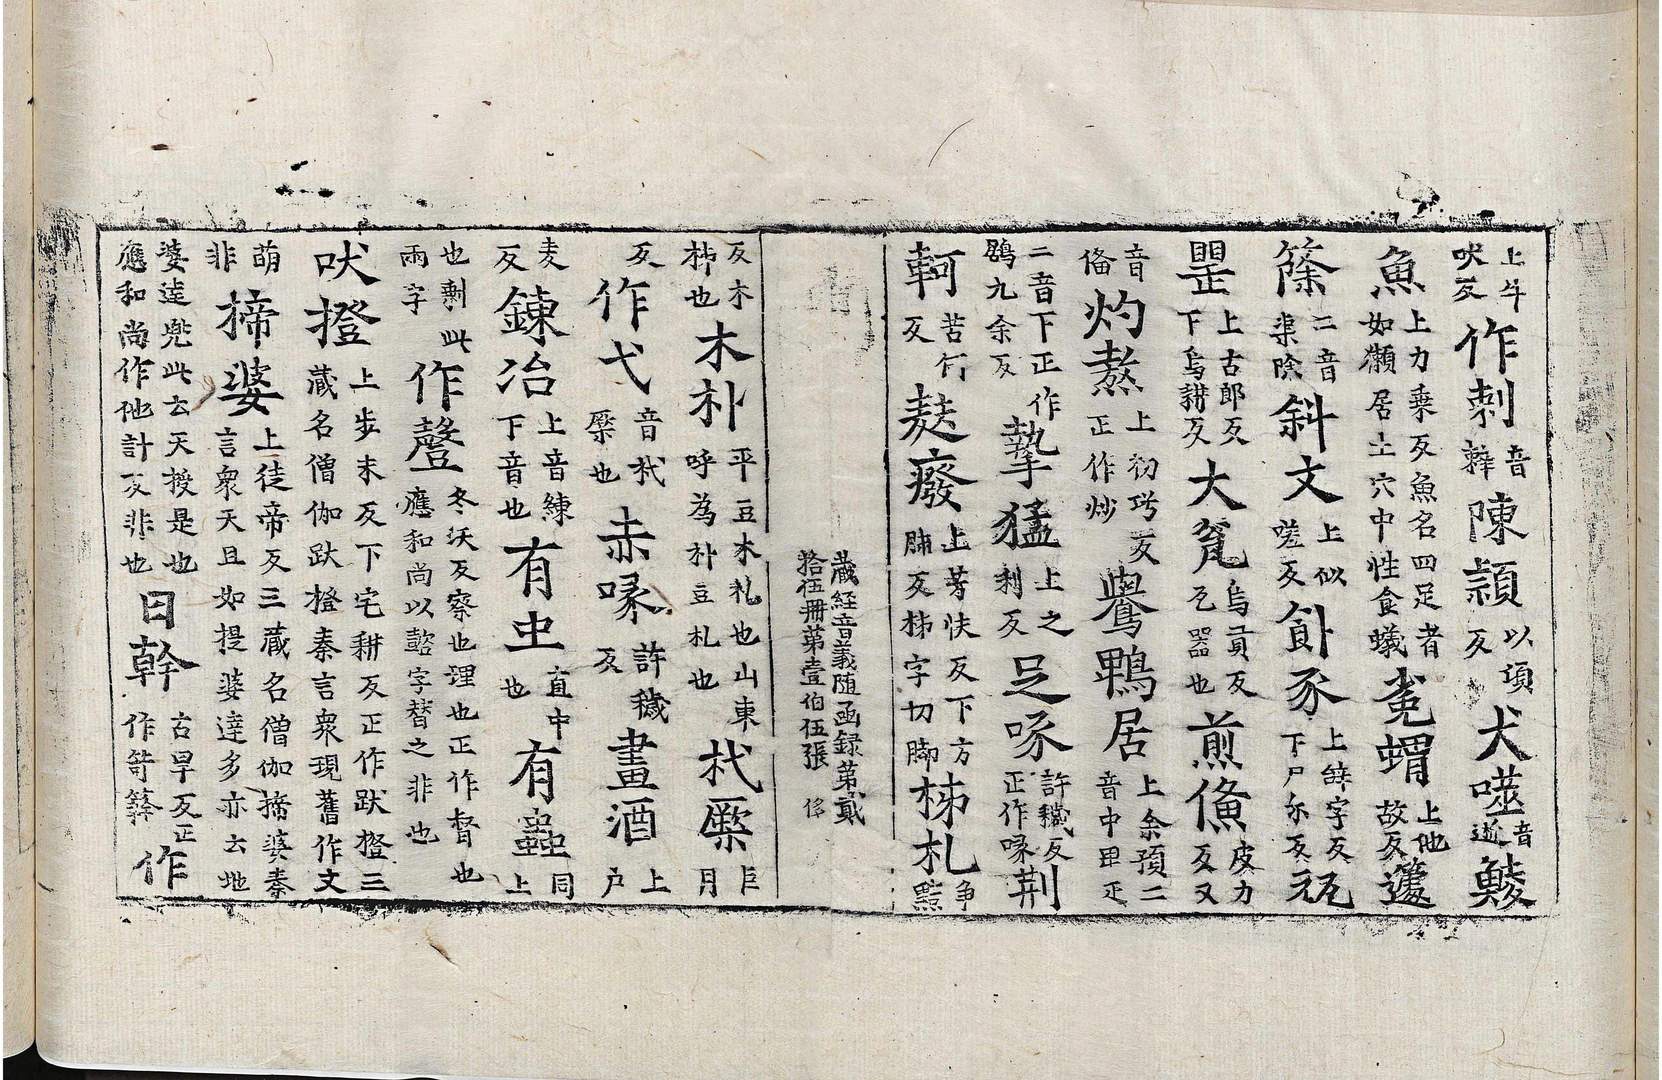 上斗吠反作刺音辢陳頴以項反犬噬音逝鯪
魚上力乗反魚名四足者如獺居土穴中性食蟻蝟上他故反
篨二音渠除斜文上似嗟反豕下尸尔反
罡上古郎反下烏耕反大瓮烏貢反瓦器也煎俻皮力反又
音俻灼熬上初巧反正作炒鸒鴨居上余預二音中甲疋
二音下正作鶂九余反摯猛上之利反足喙許穢反正作喙荆
軻苦何反麸癈上芳伕反下方肺反柹字切脚柹札爭黠
蔵經音義随函録第貳拾伍冊第壹伯伍張
反木柹也木朴平豆木札也山東呼為朴豆札也杙橜巨月
反作弋音杙橜也赤喙許穢反畫酒上戸
麦反鍊冶上音練下音也有虫直中也有蟲上同
也剩此兩字作督冬沃反察也理也正作督也應和尚以字替之非也
吠橙上步末反下宅耕反正作跋橙三蔵名僧伽跋橙秦言衆現舊作文
萌非揥婆上徒帝反三蔵名僧伽揥婆秦言衆天且如提婆達多亦云地
婆逵兜此云天授是也應和尚作他計反非也日幹古旱反正作笴簳作